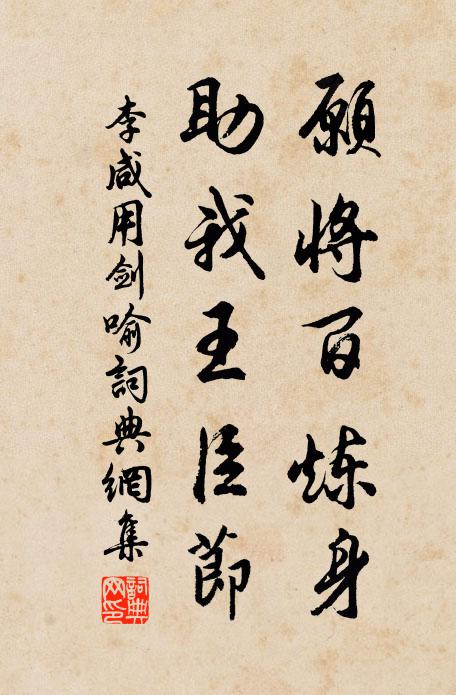 願將百炼身
助我王臣節
李咸用劍喻詞典網集
詞典
网印